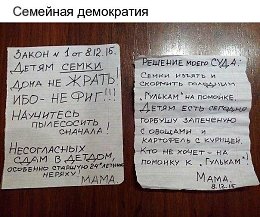 Семейная демократия
ЗАКОН N 1 от 8.12.15.
ДЕТЯМ СЕМКИ
ДОМА НЕ ЖРАТЬ
ИБО - НЕ ФИГ!!!
НАУЧИТЕСЬ
ПЫЛЕСОСИТЬ
СНАЧАЛА!
НЕСОГЛАСНЫХ
СДАМ В ДЕТДОМ,
ОСОБЕННО СТАРШУЮ 24х ЛЕТНЮЮ
НЕРЯХУ!
МАМА.
РЕШЕНИЕ МОЕГО СУДА:
СЕМКИ ИЗЪЯТЬ И
СКОРМИТЬ ГОЛОДНЫМ
"ГУЛЬКАМ" НА ПОМОЙКЕ.
ДЕТЯМ ЕСТЬ СЕГОДНЯ
ГОРБУШУ ЗАПЕЧЕНУЮ
С ОВОЩАМИ И
КАРТОФЕЛЬ С КУРИЦЕЙ.
КТО НЕ ХОЧЕТ - НА
ПОМОЙКУ К "ГУЛЬКАМ"!
МАМА.
8.12.15